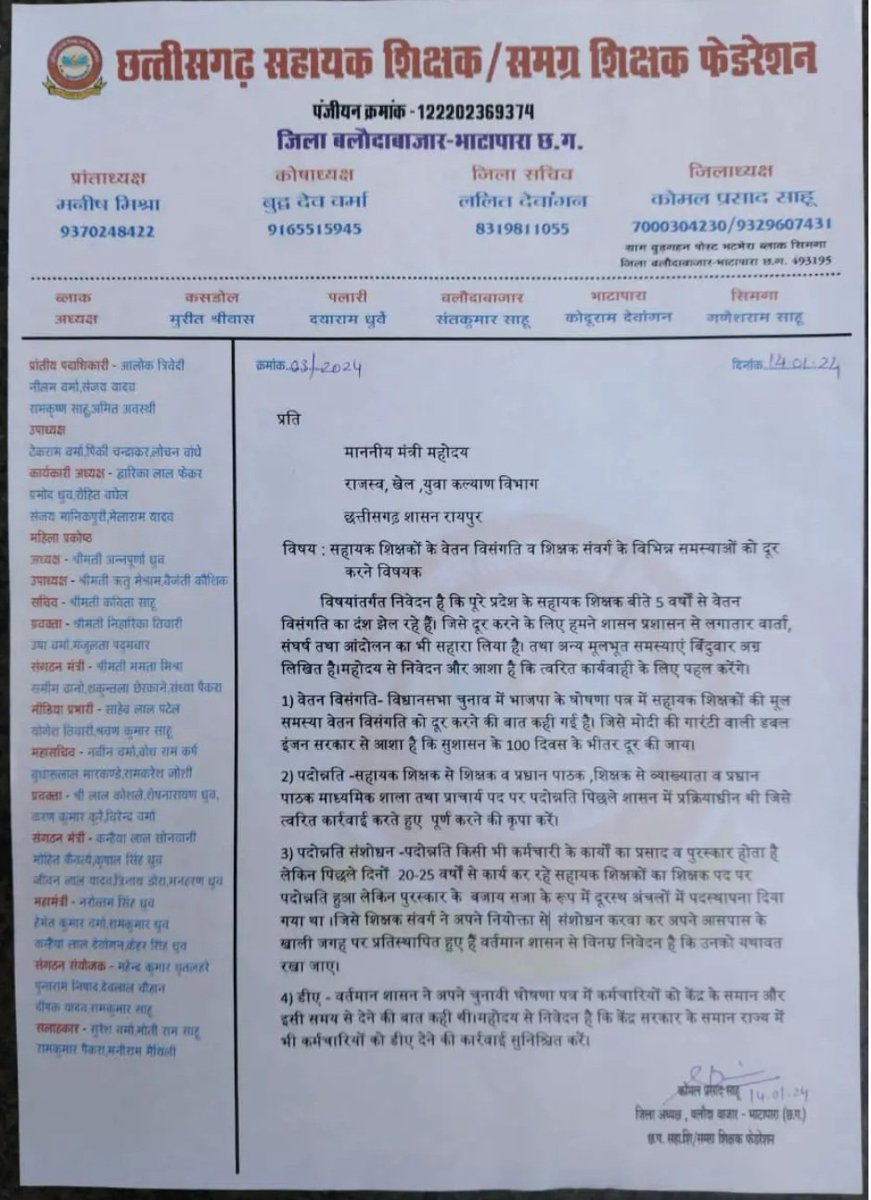 छत्तीसगढ़ सहायक शिक्षक/समग्र शिक्षक फेडरेशन
पंजीयन क्रमांक - 122202369374
जिला बलौदाबाजार-भाटापारा छ.ग.
प्रांताध्यक्ष
मनीष मिश्रा
9370248422
कोषाध्यक्ष
बुद्ध देव वर्मा
9165515945
जिला सचिव
ललित देवांगन
8319811055
जिलाध्यक्ष
कोमल प्रसाद साहू
7000304230/9329607431
ग्राम बुड़गहन पोस्ट भटभेरा ब्लाक सिमगा
जिला बलौदाबाजार-भाटापारा छ.ग. 493195
ब्लाक अध्यक्ष
कसडोल
मुरीत श्रीवास
पलारी
दयाराम धुर्वे
बलौदाबाजार
संतकुमार साहू
भाटापारा
कोदूराम देवांगन
सिमगा
गणेशराम साहू
प्रांतीय पदाधिकारी - आलोक त्रिवेदी
नीलम वर्मा,संजय यादव
रामकृष्ण साहू,अमित अवस्थी
उपाध्यक्ष
टेकराम वर्मा,पिंकी चन्द्राकर,लोचन वांधे
कार्यकारी अध्यक्ष - द्वारिका लाल फेकर
प्रमोद ध्रुव,रोहित वघेल
संजय मानिकपुरी,मेलाराम यादव
महिला प्रकोष्ठ
अध्यक्ष - श्रीमती अन्नपूर्णा ध्रुव
उपाध्यक्ष - श्रीमती ऋतु मेश्राम,वैजंती कौशिक
सचिव - श्रीमती कविता साहू
प्रवक्ता - श्रीमती निहारिका तिवारी
उषा वर्मा,मंजुलता पद्मवार
संगठन मंत्री - श्रीमती ममता मिश्रा
समीम वानो,शकुन्तला छेरकाने,संध्या पैकरा
मीडिया प्रभारी - साहेव लाल पटेल
योगेश तिवारी,श्रवण कुमार साहू
महासचिव - नवीन वर्मा,वोध राम कर्ष
बुधारूलाल मारकण्डे,रामकरेश जोशी
प्रवक्ता - श्री लाल कोशले,शेषनारायण ध्रुव,
करण कुमार कुर्रे,विरेन्द्र वर्मा
संगठन मंत्री - कन्हैया लाल सोनवानी
मोहित कैवर्त्य,कृपाल सिंह ध्रुव
जीवन लाल यादव,त्रिनाथ डोरा,मनहरण ध्रुव
महामंत्री - नरोत्तम सिंह ध्रुव
हेमंत कुमार वर्मा,रामकुमार ध्रुव
कन्हैया लाल देवांगन,केहर सिंह ध्रुव
संगठन संयोजक - महेन्द्र कुमार धृतलहरे
पुनाराम निषाद,देवलाल चौहान
दीपक यादव,रामकुमार साहू
सलाहकार - सुरेश वर्मा,मोती राम साहू
रामकुमार पैकरा,मनीराम मैथिली
क्रमांक 03/2024
दिनांक 14.01.24
प्रति
माननीय मंत्री महोदय
राजस्व, खेल ,युवा कल्याण विभाग
छत्तीसगढ़ शासन रायपुर
विषय : सहायक शिक्षकों के वेतन विसंगति व शिक्षक संवर्ग के विभिन्न समस्याओं को दूर
करने विषयक
विषयांतर्गत निवेदन है कि पूरे प्रदेश के सहायक शिक्षक बीते 5 वर्षों से वेतन
विसंगति का दंश झेल रहे हैं। जिसे दूर करने के लिए हमने शासन प्रशासन से लगातार वार्ता,
संघर्ष तथा आंदोलन का भी सहारा लिया है। तथा अन्य मूलभूत समस्याएं बिंदुवार अग्र
लिखित है।महोदय से निवेदन और आशा है कि त्वरित कार्यवाही के लिए पहल करेंगे।
1) वेतन विसंगति- विधानसभा चुनाव में भाजपा के घोषणा पत्र में सहायक शिक्षकों की मूल
समस्या वेतन विसंगति को दूर करने की बात कही गई है। जिसे मोदी की गारंटी वाली डबल
इंजन सरकार से आशा है कि सुशासन के 100 दिवस के भीतर दूर की जाय।
2) पदोन्नति -सहायक शिक्षक से शिक्षक व प्रधान पाठक ,शिक्षक से व्याख्याता व प्रधान
पाठक माध्यमिक शाला तथा प्राचार्य पद पर पदोन्नति पिछले शासन में प्रक्रियाधीन थी जिसे
त्वरित कार्रवाई करते हुए पूर्ण करने की कृपा करें।
3) पदोन्नति संशोधन -पदोन्नति किसी भी कर्मचारी के कार्यों का प्रसाद व पुरस्कार होता है
लेकिन पिछले दिनों 20-25 वर्षों से कार्य कर रहे सहायक शिक्षकों का शिक्षक पद पर
पदोन्नति हुआ लेकिन पुरस्कार के बजाय सजा के रूप में दूरस्थ अंचलों में पदस्थापना दिया
गया था ।जिसे शिक्षक संवर्ग ने अपने नियोक्ता से संशोधन करवा कर अपने आसपास के
खाली जगह पर प्रतिस्थापित हुए हैं वर्तमान शासन से विनम्र निवेदन है कि उनको यथावत
रखा जाए।
4) डीए - वर्तमान शासन ने अपने चुनावी घोषणा पत्र में कर्मचारियों को केंद्र के समान और
इसी समय से देने की बात कही थी।महोदय से निवेदन है कि केंद्र सरकार के समान राज्य में
भी कर्मचारियों को डीए देने की कार्रवाई सुनिश्चित करें।
कोमल प्रसाद साहू 14.01.24
जिला अध्यक्ष , बलौदा बाजार - भाटापारा (छ.ग.)
छ.ग. सहा.शि/समग्र शिक्षक फेडरेशन